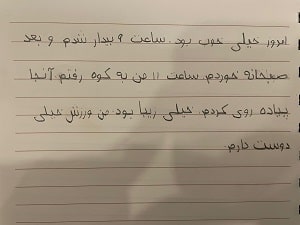 امروز خیلی خوب بود. ساعت ۹ بیدار شدم و بعد
صبحانه خوردم. ساعت ۱۱ من به کوه رفتم. آنجا
پیاده روی کردم. خیلی زیبا بود. من ورزش خیلی
دوست دارم